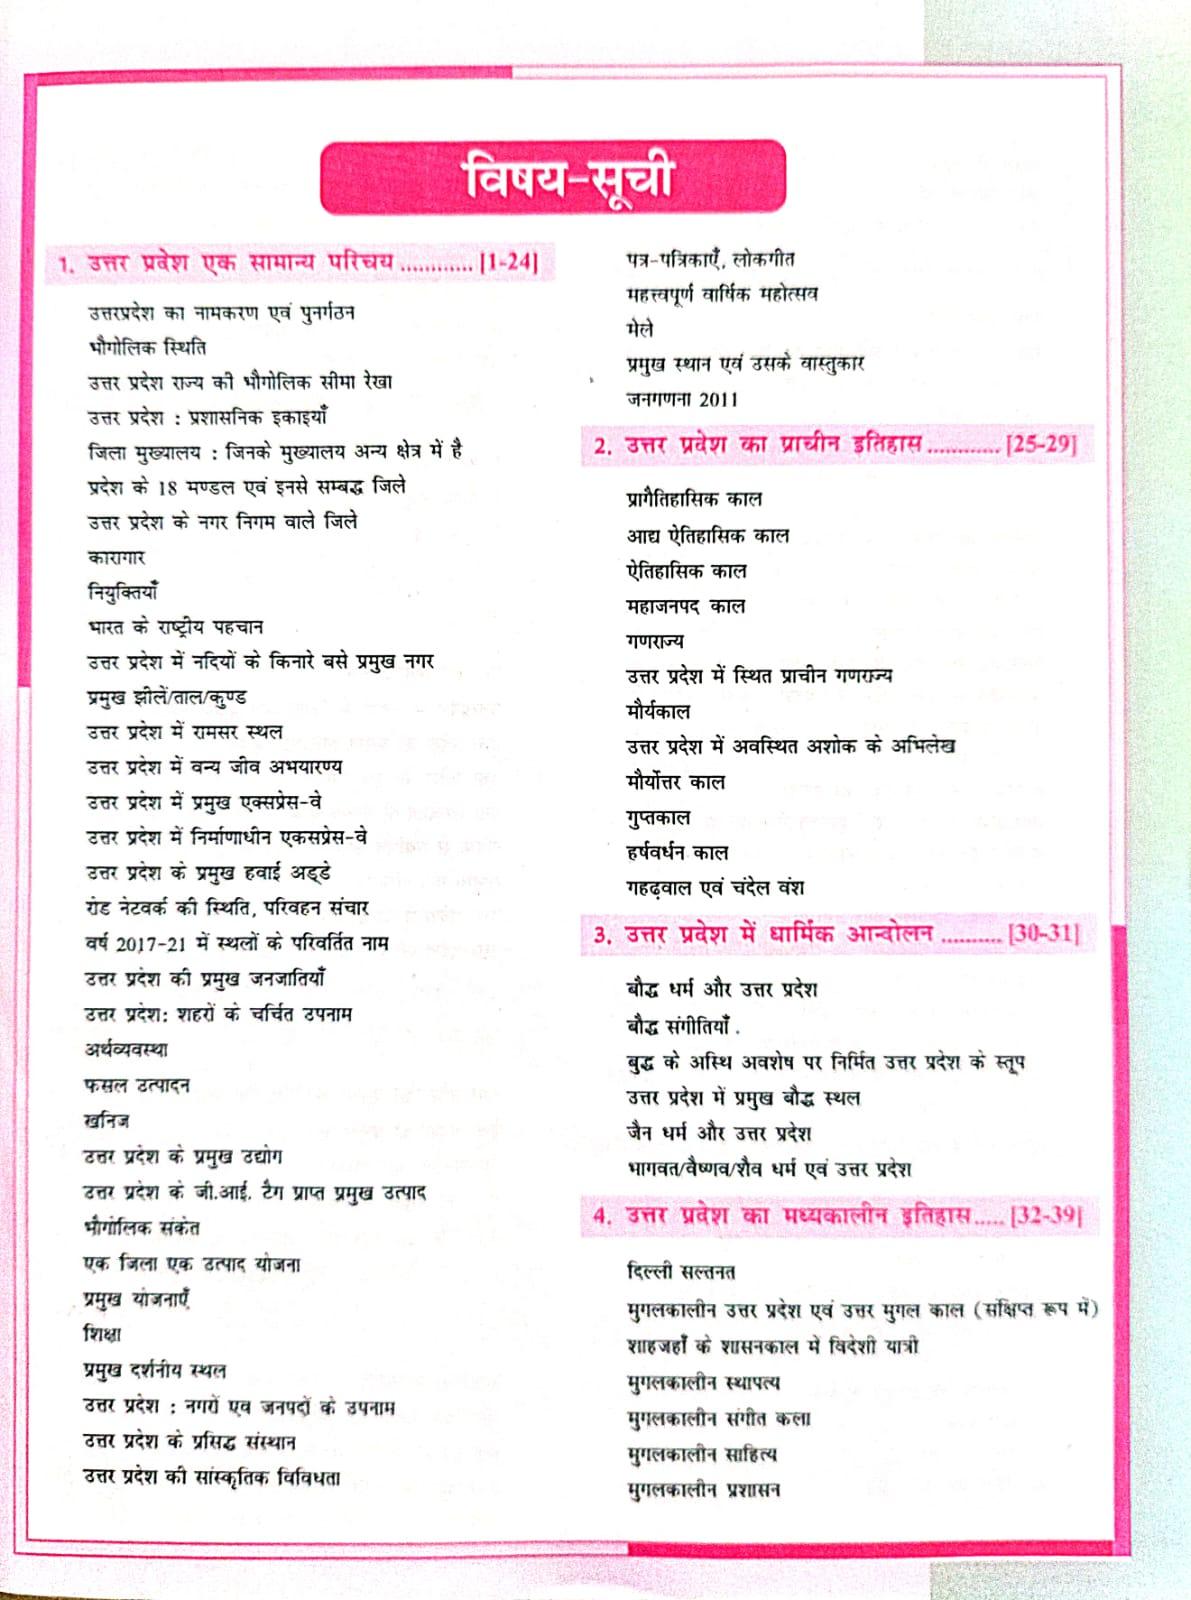 विषय-सूची
1. उत्तर प्रदेश एक सामान्य परिचय ............ [1-24]
उत्तरप्रदेश का नामकरण एवं पुनर्गठन
भौगोलिक स्थिति
उत्तर प्रदेश राज्य की भौगोलिक सीमा रेखा
उत्तर प्रदेश : प्रशासनिक इकाइयाँ
जिला मुख्यालय : जिनके मुख्यालय अन्य क्षेत्र में है
प्रदेश के 18 मण्डल एवं इनसे सम्बद्ध जिले
उत्तर प्रदेश के नगर निगम वाले जिले
कारागार
नियुक्तियाँ
भारत के राष्ट्रीय पहचान
उत्तर प्रदेश में नदियों के किनारे बसे प्रमुख नगर
प्रमुख झीलें/ताल/कुण्ड
उत्तर प्रदेश में रामसर स्थल
उत्तर प्रदेश में वन्य जीव अभयारण्य
उत्तर प्रदेश में प्रमुख एक्सप्रेस-वे
उत्तर प्रदेश में निर्माणाधीन एकसप्रेस-वे
उत्तर प्रदेश के प्रमुख हवाई अड्डे
रोड नेटवर्क की स्थिति, परिवहन संचार
वर्ष 2017-21 में स्थलों के परिवर्तित नाम
उत्तर प्रदेश की प्रमुख जनजातियाँ
उत्तर प्रदेश: शहरों के चर्चित उपनाम
अर्थव्यवस्था
फसल उत्पादन
खनिज
उत्तर प्रदेश के प्रमुख उद्योग
उत्तर प्रदेश के जी.आई. टैग प्राप्त प्रमुख उत्पाद
भौगोलिक संकेत
एक जिला एक उत्पाद योजना
प्रमुख योजनाएँ
शिक्षा
प्रमुख दर्शनीय स्थल
उत्तर प्रदेश : नगरों एव जनपदों के उपनाम
उत्तर प्रदेश के प्रसिद्ध संस्थान
उत्तर प्रदेश की सांस्कृतिक विविधता
पत्र-पत्रिकाएँ, लोकगीत
महत्त्वपूर्ण वार्षिक महोत्सव
मेले
प्रमुख स्थान एवं उसके वास्तुकार
जनगणना 2011
2. उत्तर प्रदेश का प्राचीन इतिहास ............ [25-29]
प्रागैतिहासिक काल
आद्य ऐतिहासिक काल
ऐतिहासिक काल
महाजनपद काल
गणराज्य
उत्तर प्रदेश में स्थित प्राचीन गणराज्य
मौर्यकाल
उत्तर प्रदेश में अवस्थित अशोक के अभिलेख
मौर्योत्तर काल
गुप्तकाल
हर्षवर्धन काल
गहढ़वाल एवं चंदेल वंश
3. उत्तर प्रदेश में धार्मिक आन्दोलन .......... [30-31]
बौद्ध धर्म और उत्तर प्रदेश
बौद्ध संगीतियाँ .
बुद्ध के अस्थि अवशेष पर निर्मित उत्तर प्रदेश के स्तूप
उत्तर प्रदेश में प्रमुख बौद्ध स्थल
जैन धर्म और उत्तर प्रदेश
भागवत/वैष्णव/शैव धर्म एवं उत्तर प्रदेश
4. उत्तर प्रदेश का मध्यकालीन इतिहास..... [32-39]
दिल्ली सल्तनत
मुगलकालीन उत्तर प्रदेश एवं उत्तर मुगल काल (संक्षिप्त रूप में)
शाहजहाँ के शासनकाल में विदेशी यात्री
मुगलकालीन स्थापत्य
मुगलकालीन संगीत कला
मुगलकालीन साहित्य
मुगलकालीन प्रशासन